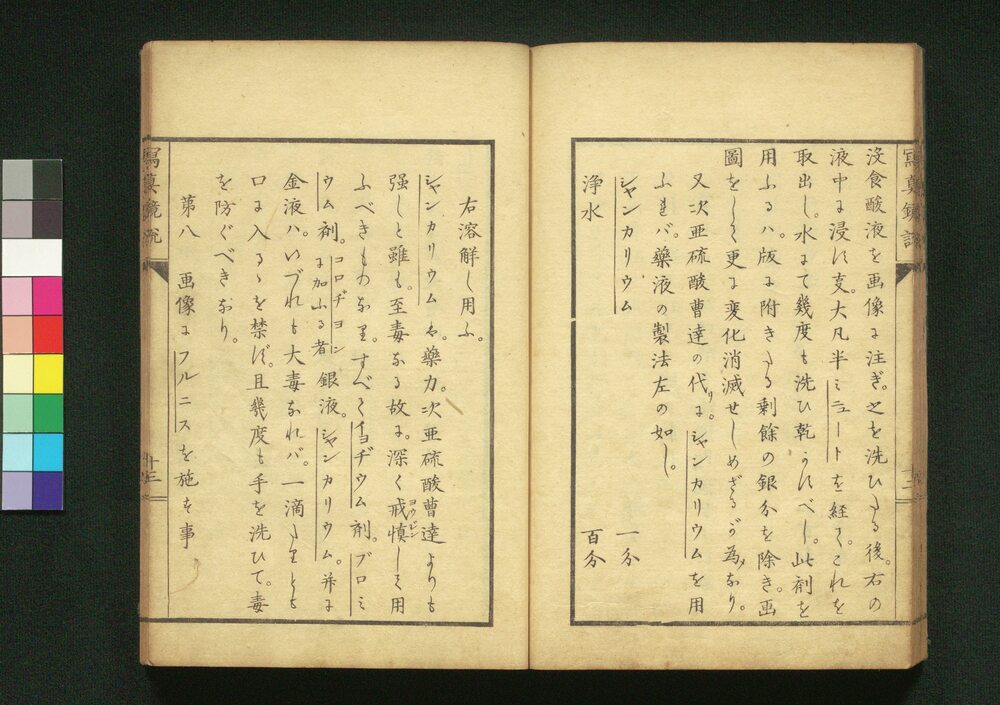 没食酸液を画像に注ぎ。之を洗ひたる後。右の
液中に浸す支。大凡半ミニュートを経て。これを
取出し。水にて幾度も洗ひ乾かすべし。此剤を
用ふるハ。版に附きたる剰餘の銀分を除き。画
圖をして更に変化消滅せしめざるが為なり。
又次亜硫酸曹達の代りに。シャンカリウムを用
ふれバ。藥液の製法左の如し。
シャンカリウム 一分
浄水 百分
右溶解し用ふ。
シャンカリウムハ。藥力。次亜硫酸曹達よりも
强しと雖も。至毒なる故に。深く戒慎して用
ふべきものなり。すべてイヨヂウム剤。ブロミ
ウム剤。コロヂヨンに加ふる者銀液。シャンカリウム。并に
金液ハ。いづれも大毒なれバ。一滴たりとも
口に入るゝを禁ず。且幾度も手を洗ひて。毒
を防ぐべきなり。
第八 画像にフルニスを施す事
寫真鏡説